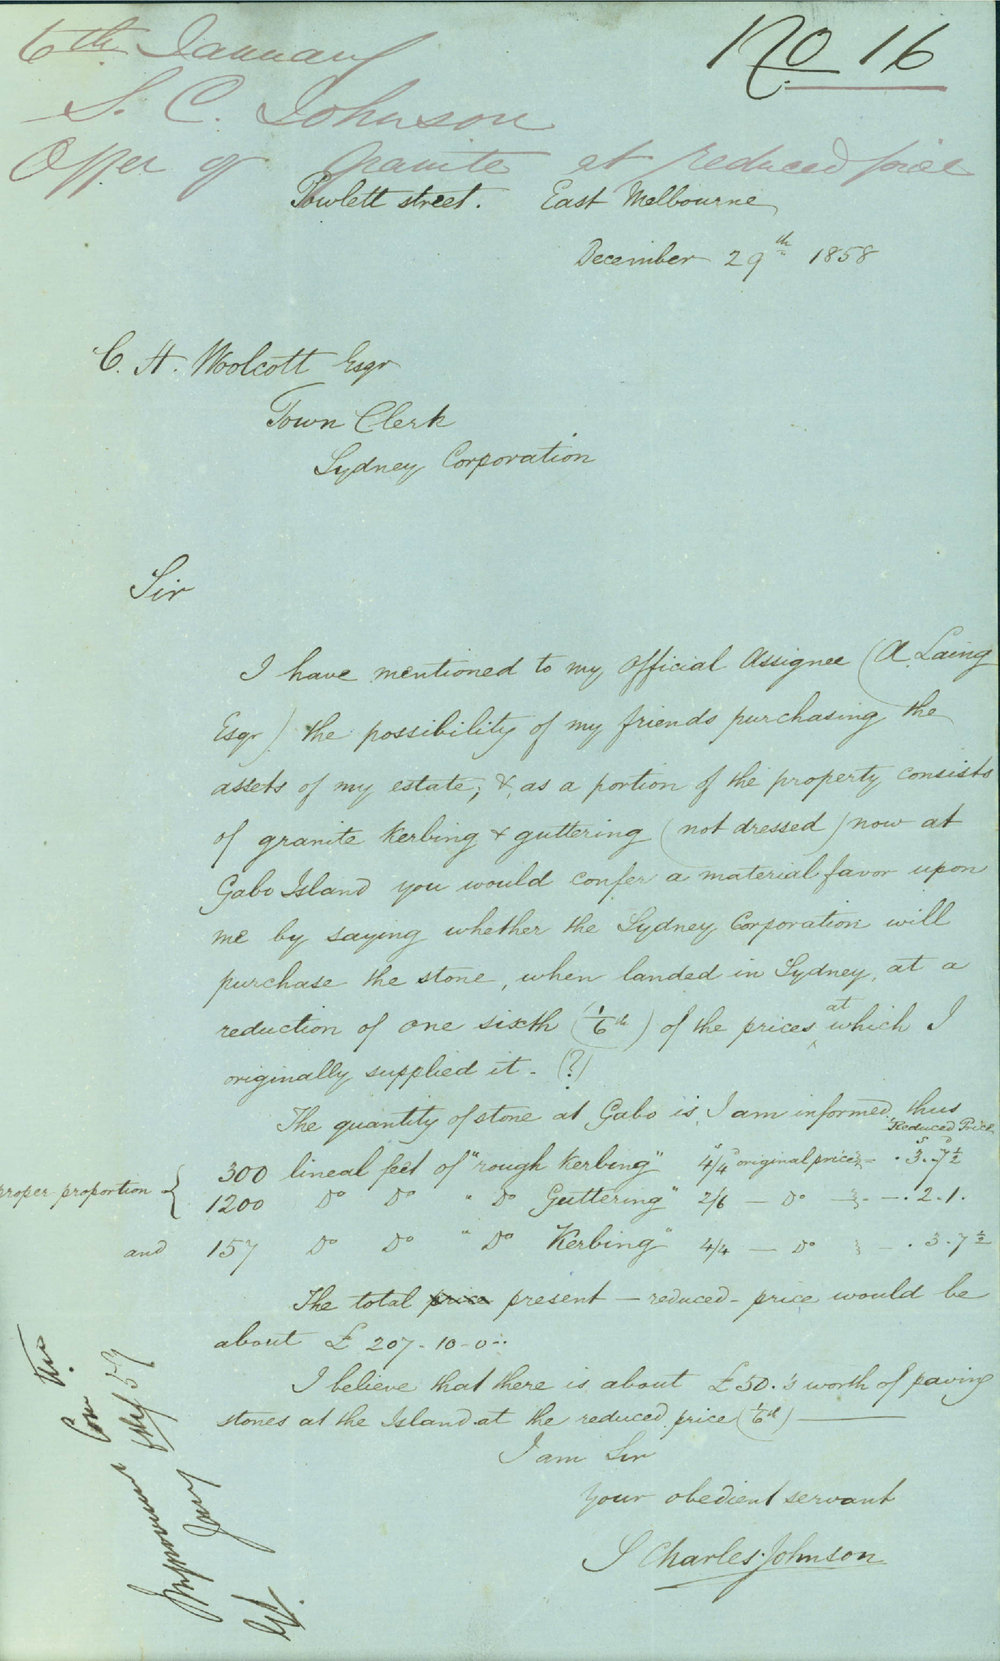 No 16
6th January
S. C. Johnson
Offer of Granite at reduced price
Powlett street. East Melbourne
December 29th 1858
C. H. Woolcott Esqr
Town Clerk
Sydney Corporation
Sir
I have mentioned to my Official Assignee (A Laing
Esqr) the possibility of my friends purchasing the
assets of my estate; & as a portion of the property consists
of granite Kerbing & guttering (not dressed) now at
Gabo Island you would confer a material favor upon
me by saying whether the Sydney Corporation will
purchase the stone, when landed in Sydney, at a
reduction of one sixth (1/6th) of the prices at which I
originally supplied it - (?)
The quantity of stone at Gabo is, I am informed, thus
Reduced Price
S D
proper proportion { 300 lineal feet of "rough Kerbing" 4/4 original price = . 3. 7 1/2
1200 Do Do " Do Guttering" 2/6 — Do — . 2. 1.
and 157 Do Do " Do Kerbing" 4/4 — Do — . 3. 7 1/2
The total price present - reduced - price would be
about £ 207 - 10 - 0
I believe that there is about £50.'s worth of paving
stones at the Island at the reduced price (1/6th) ———
I am Sir
Your obedient servant
S Charles Johnson
Improvement Com
Jany